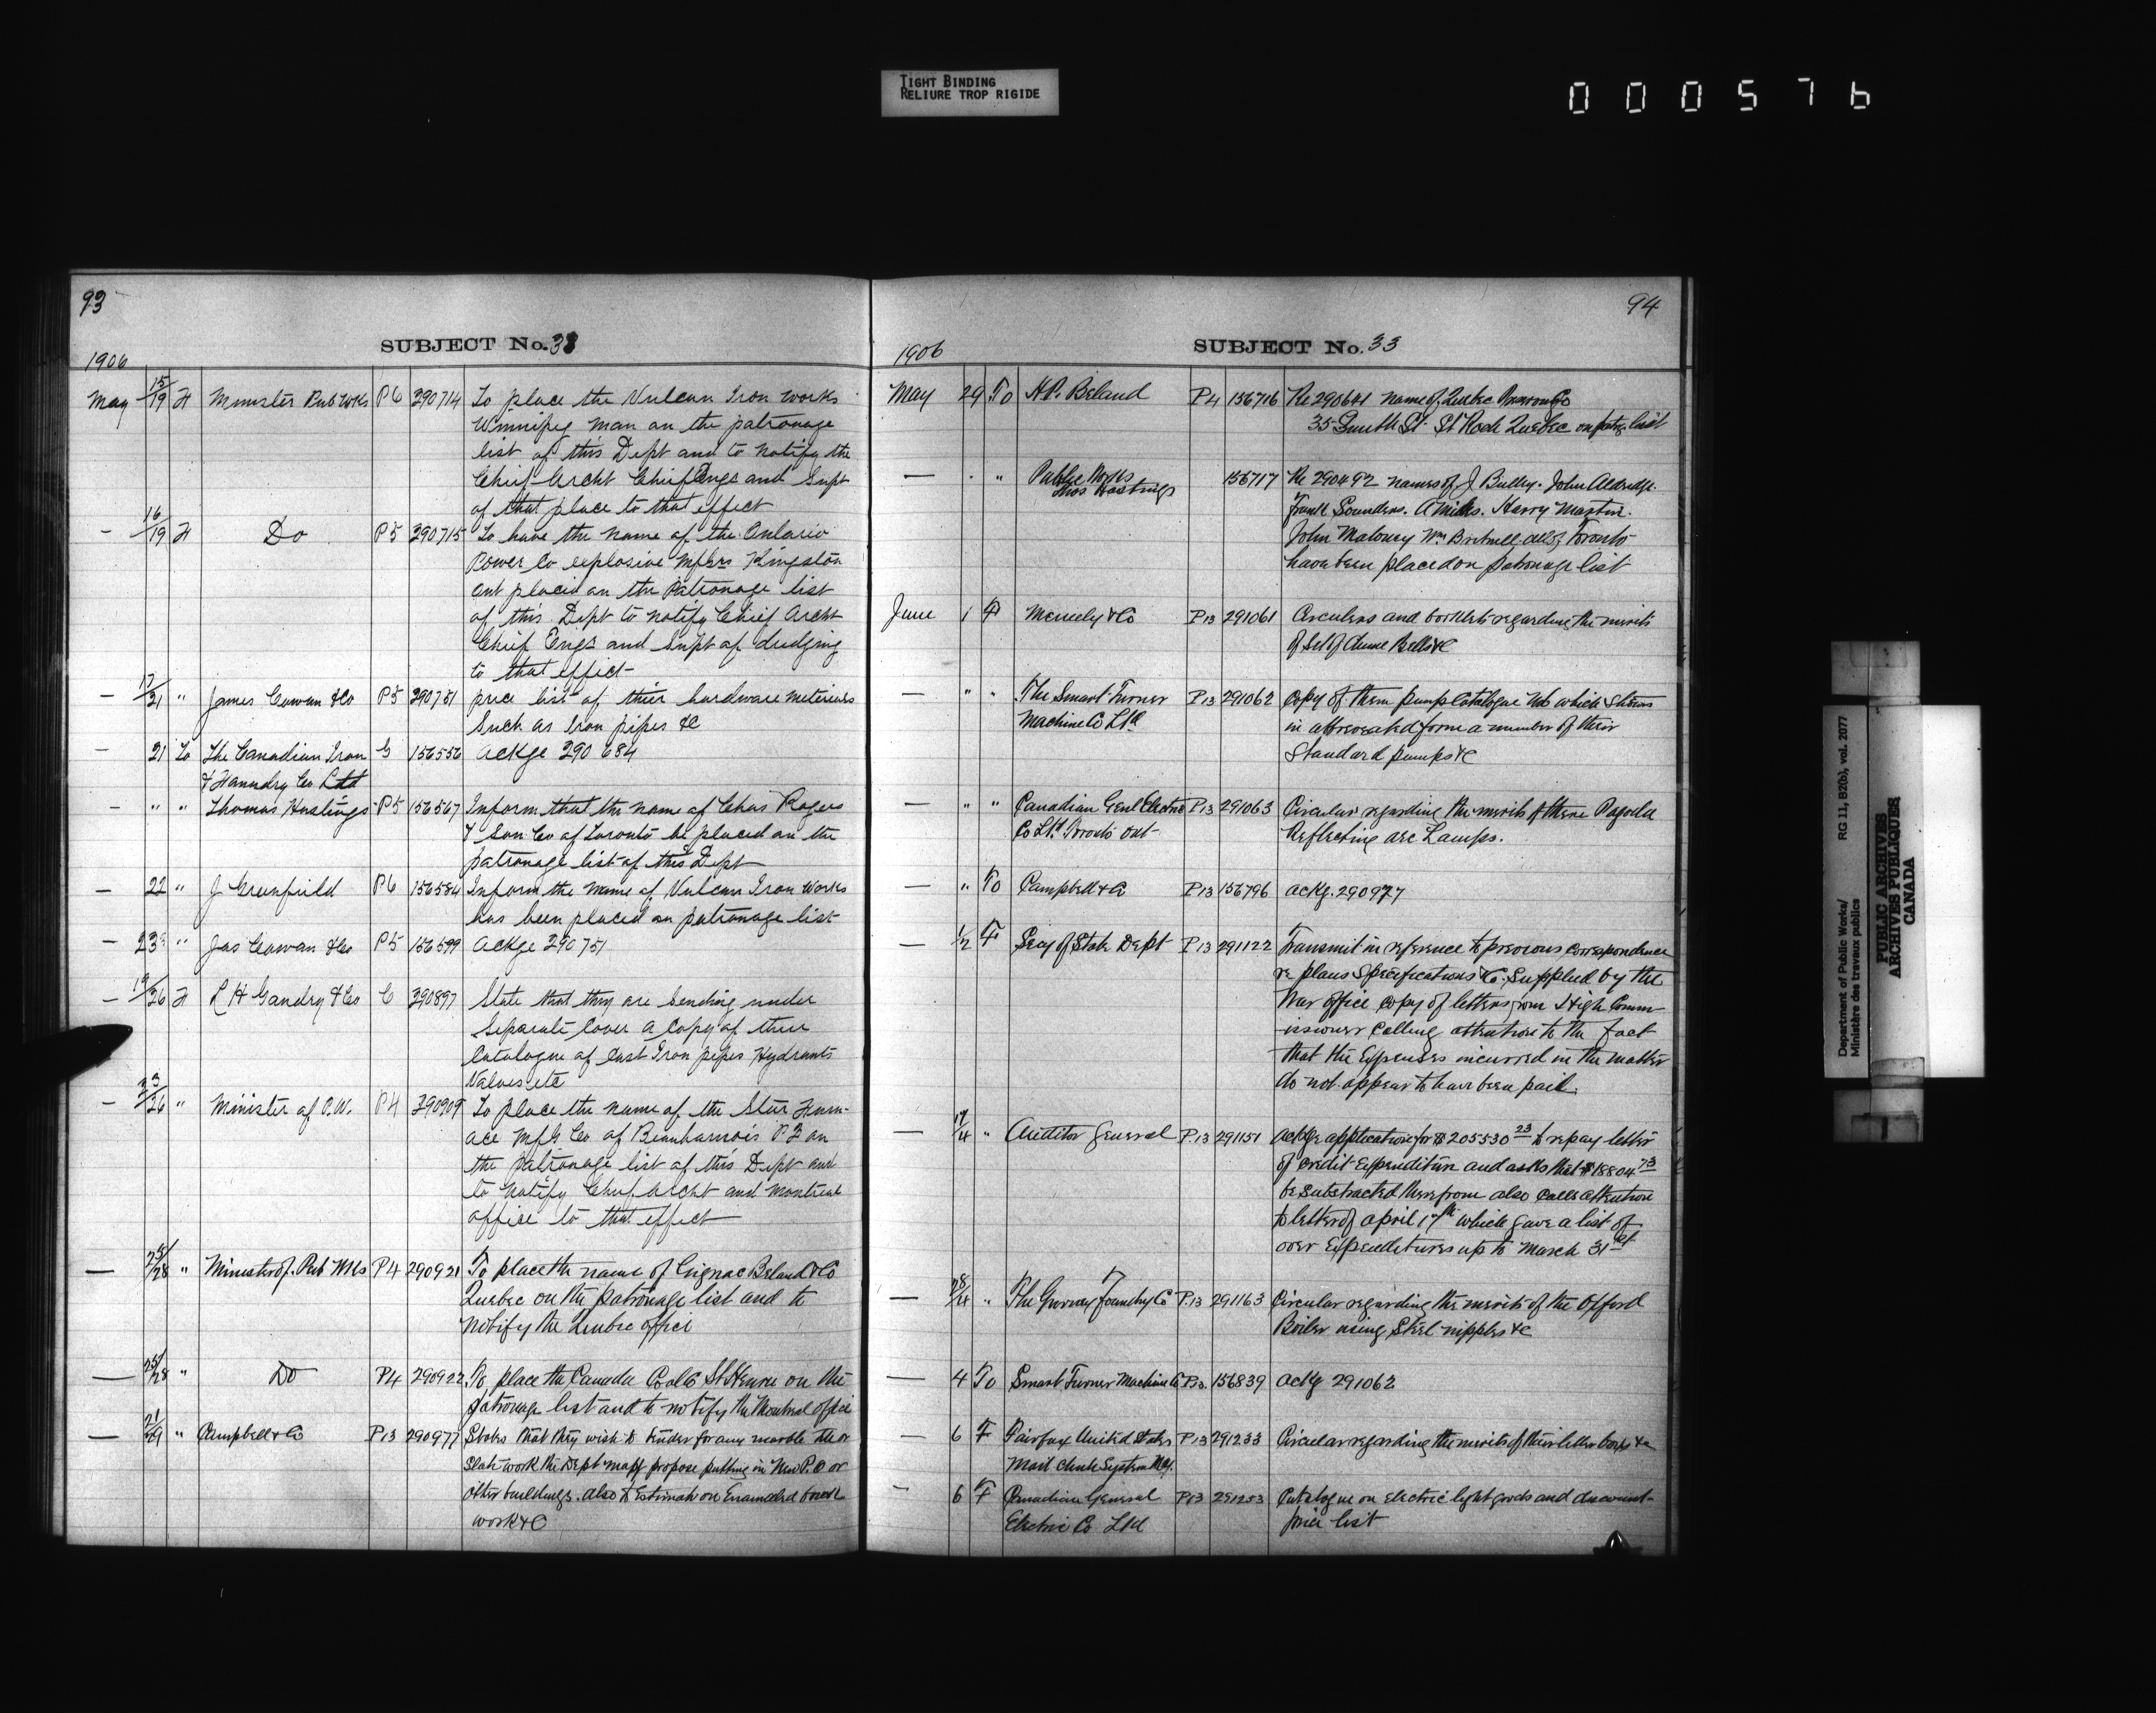 TIGHT BINDING
RELIURE TROP RIGIDE
000576
93
SUBJECT No. 33
1906
May 15/19 F Minister Pub Wks P6 290714 To place the Vulcan Iron Works
Winnipeg Man on the patronage
list of this Dept and to notify the
Chief Archt Chief Engr and Supt
of that place to that effect
— 16/19 F Do P5 290715 To have the name of the Ontario
Power Co explosive Mfgrs Kingston
Ont placed on the Patronage list
of this Dept to notify Chief Archt
Chief Engr and Supt of dredging
to that effect
— 17/21 " James Cowan & Co P5 290751 price list of their hardware materials
Such as Iron pipes &c
— 21 To The Canadian Iron G 156556 Ackge 290684
& Foundry Co Ltd
— " " Thomas Hastings P5 156567 Inform that the name of Chas Rogers
& Son Co of Toronto be placed on the
patronage list of this Dept
— 22 " J Greenfield P6 156584 Inform the name of Vulcan Iron Works
has been placed on patronage list
— 23 " Jas Cowan & Co P5 156599 Ackge 290751
— 19/26 F L H Gandry & Co C 290897 State that they are sending under
Separate Cover a Copy of their
Catalogue of Cast Iron pipes Hydrants
Valves etc
— 23/26 " Minister of P.W. P4 290909 To place the name of the Star Furn-
ace Mfg Co of Beauharnois P2 on
the patronage list of this Dept and
to notify Chief Archt and Montreal
office to that effect
— 25/28 " Minister of Pub Wks P4 290921 To place the name of Gignac Beland & Co
Quebec on the patronage list and to
Notify the Quebec office
— 25/28 " Do P4 290922 To place the Canada Coal Co St Henri on the
patronage list and to notify the Montreal office
— 21/29 " Campbell & Co P13 290977 States that they wish to tender for any marble tile or
Slate work the Dept may propose putting in New P.O or
other buildings. also to Estimate on Enameled
work &c
94
SUBJECT No. 33
1906
May 29 To H.P. Beland P4 156716 Re 290641 name of Quebec Co
35 Smith St St Roch Quebec on patge list
— " " Public Works 156717 Re 290492 names of J Bulley. John Aldridge.
Thos Hastings
Frank Saunders. A Miles. Harry Martin.
John Maloney Wm Britnell all of Toronto
have been placed on patronage list
June 1 F Meneely & Co P13 291061 Circulars and booklets regarding the merits
of Set of Chime Bells &c
— " " The Smart Turner P13 291062 Copy of them pump Catalogue No which Shows
Machine Co Ltd in abbreviated form a number of their
Standard pumps &c
— " " Canadian Genl Electric P13 291063 Circular regarding the merits of there Pagoda
Co Ltd Toronto Ont Reflecting arc Lamps.
— " To Campbell & Co P13 156796 ackg. 290977
— 1/2 F Secy of State Dept P13 291122 Transmit in reference to previous Correspondence
re plans Specifications &c. Supplied by the
War Office copy of letters from High Comm-
issioner Calling attention to the fact
that the Expenses incurred in the matter
do not appear to have been paid.
— 17/4 " Auditor General P.13 291151 Ackge application for $205530 23 to repay letter
of Credit Expenditure and asks that $18804 73
be Substracted therefrom also Calls attention
to letter of April 17th which gave a list of
over Expenditures up to March 31st
— 28/4 " The Gurney Foundry Co P.13 291163 Circular regarding the merits of the Offord
Boiler using Steel nipples &c
— 4 To Smart Turner Machine Co P.13. 156839 ackg 291062
— 6 F Fairfax United States P13 291233 Circular regarding the merits of their letter boxes &c
Mail Chute System Mfg.
— 6 F Canadian General P13 291253 Catalogue on Electric light goods and discount
Electric Co Ltd price list
Department of Public Works/
Ministère des travaux publics
RG 11, B2(b), vol. 2077
PUBLIC ARCHIVES
ARCHIVES PUBLIQUES
CANADA